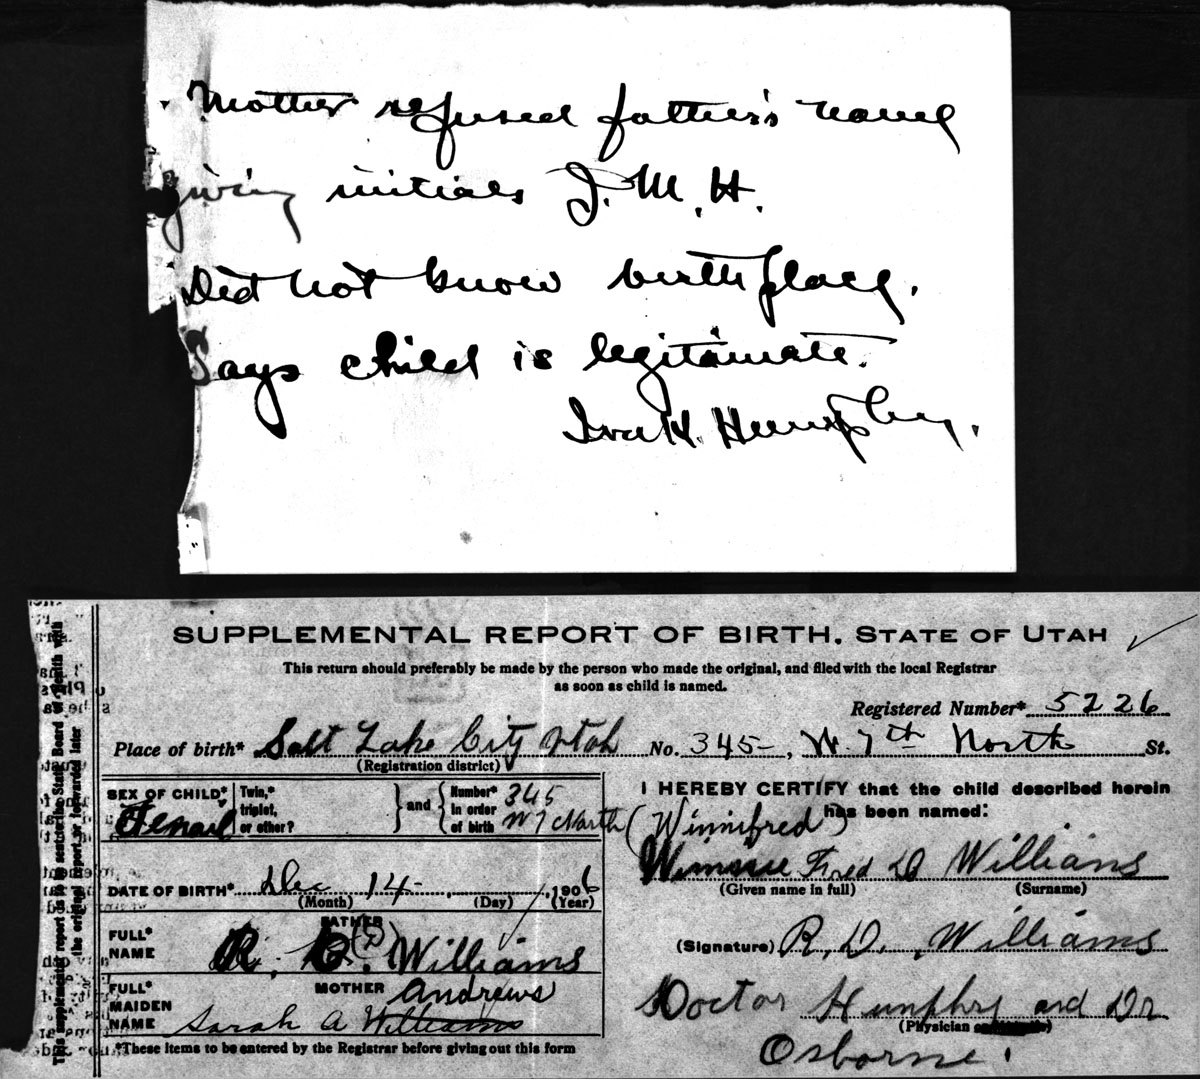 Mother refused father's name
giving initials J. M. H.
Did not know birth place.
Says child is legitimate.
Iva K. Humphrey.
SUPPLEMENTAL REPORT OF BIRTH. STATE OF UTAH
This return should preferably be made by the person who made the original, and filed with the local Registrar
as soon as child is named.
Registered Number* 5226
Place of birth* Salt Lake City Utah No. 345, W. 7th North St.
(Registration district)
SEX OF CHILD* Female
Twin,* triplet, or other?
and
Number* in order of birth 345 W 7 North
I HEREBY CERTIFY that the child described herein
has been named:
(Winnifred)
Winnie Fred D Williams
(Given name in full) (Surname)
DATE OF BIRTH* Dec 14 1906
(Month) (Day) (Year)
FATHER
FULL* NAME R. D. (D) Williams
(Signature) R. D. Williams
MOTHER
FULL* MAIDEN NAME Sarah A Williams Andrews
Doctor Humphry and Dr
(Physician
Osborne.
*These items to be entered by the Registrar before giving out this form
the original report, or forwarded later